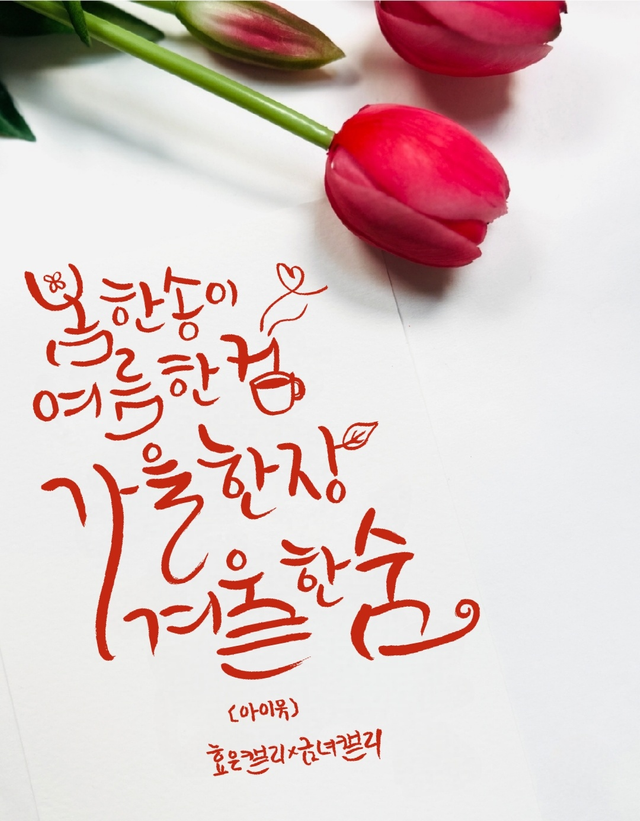 봄 한송이
여름 한 컵
가을 한 장
겨울 한 숨
(아이유)
효은캘리x금녀캘리